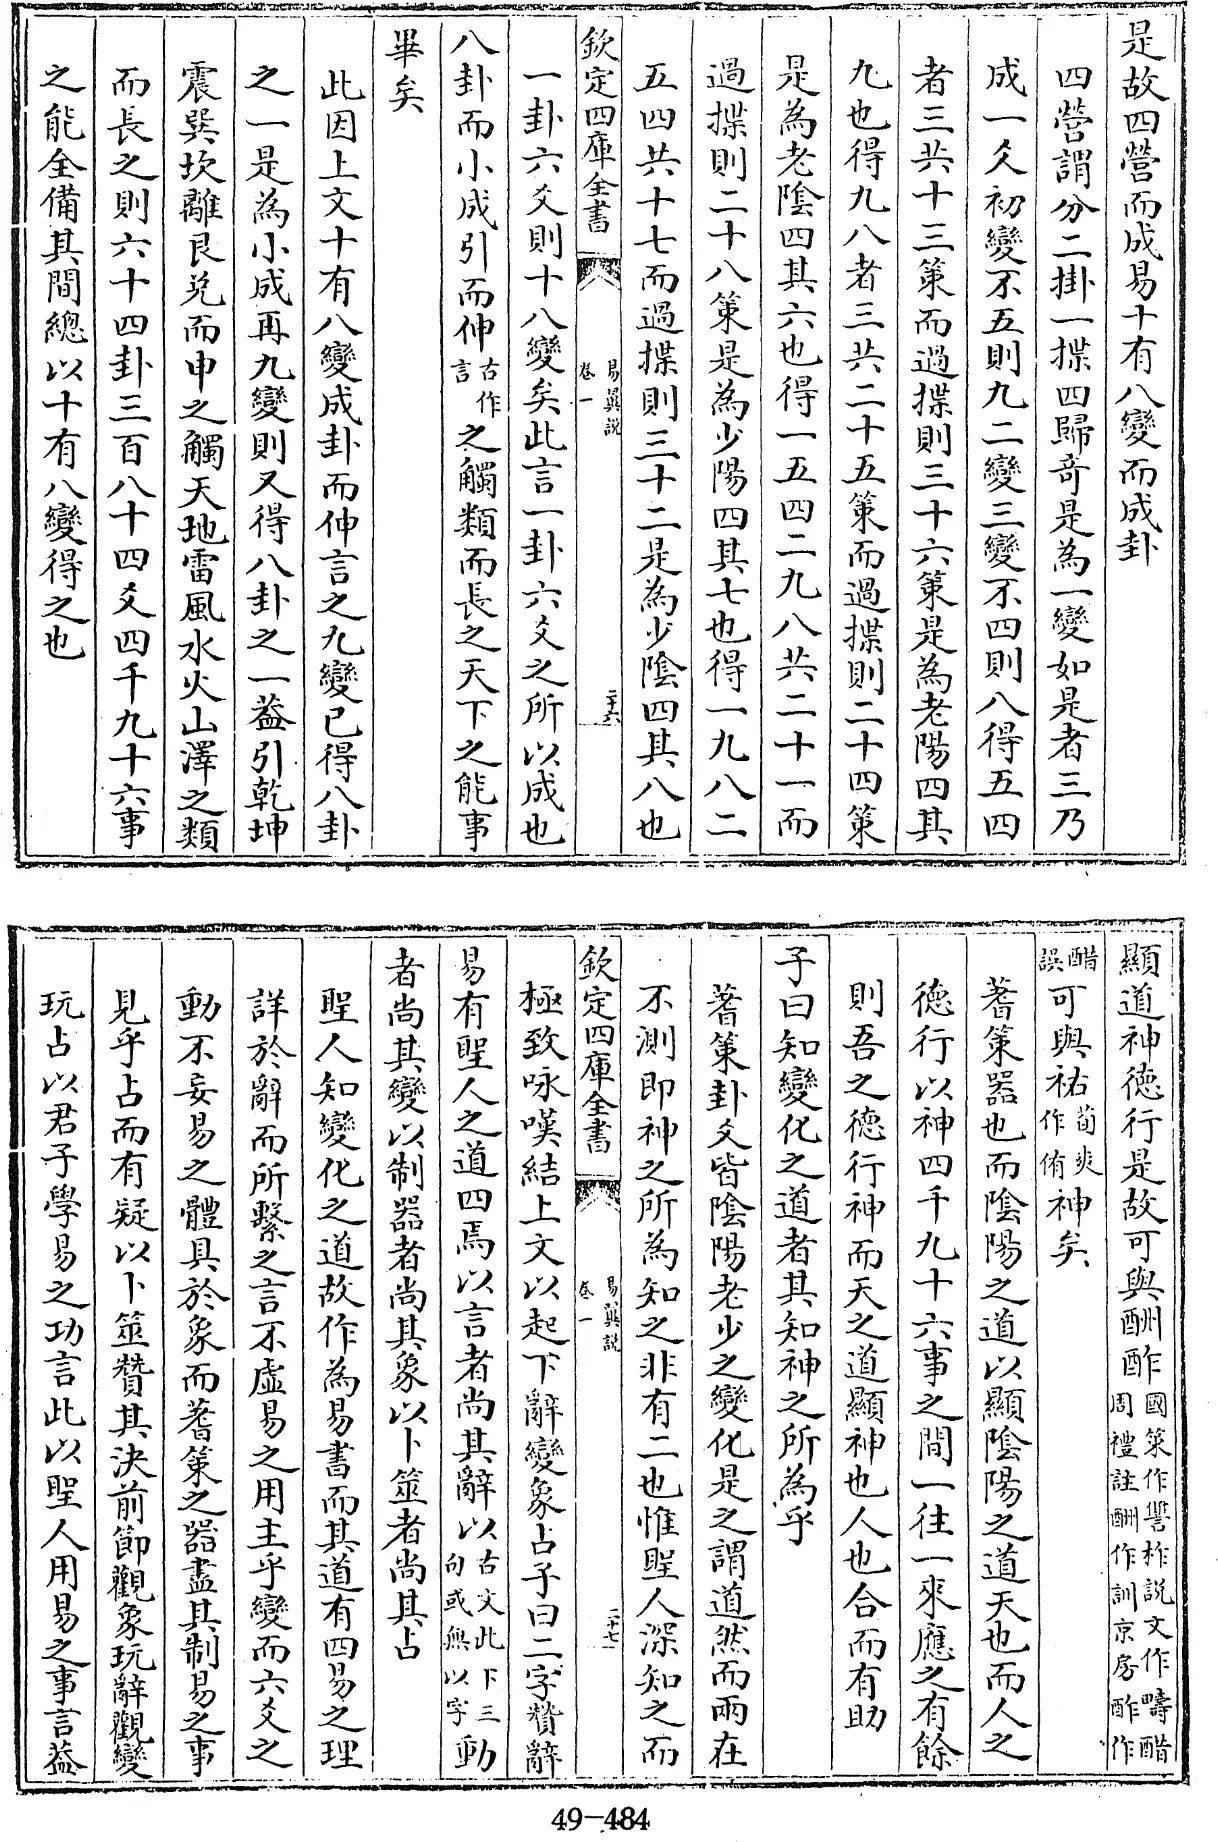 是故四營而成易十有八變而成卦
四營謂分二掛一揲四歸奇是為一變如是者三乃
成一爻初變不五則九二變三變不四則八得五四
者三共十三策而過揲則三十六策是為老陽四其
九也得九八者三共二十五策而過揲則二十四策
是為老陰四其六也得一五四二九八共二十一而
過揲則二十八策是為少陽四其七也得一九八二
五四共十七而過揲則三十二是為少陰四其八也
欽定四庫全書 易翼説 卷一 二十六
一卦六爻則十八變矣此言一卦六爻之所以成也
八卦而小成引而伸古作言之觸類而長之天下之能事
畢矣
此因上文十有八變成卦而伸言之九變已得八卦
之一是為小成再九變則又得八卦之一葢引乾坤
震巽坎離艮兌而申之觸天地雷風水火山澤之類
而長之則六十四卦三百八十四爻四千九十六事
之能全備其間總以十有八變得之也
顯道神德行是故可與酬酢國策作讐柞説文作疇醋周禮註酬作訓京房酢作
醋誤可與祐荀爽作侑神矣
蓍策器也而陰陽之道以顯陰陽之道天也而人之
德行以神四千九十六事之間一往一來應之有餘
則吾之德行神而天之道顯神也人也合而有助
子曰知變化之道者其知神之所為乎
蓍策卦爻皆陰陽老少之變化是之謂道然而兩在
不測即神之所為知之非有二也惟聖人深知之而
欽定四庫全書 易翼説 卷一 二十七
極致咏嘆結上文以起下辭變象占子曰二字贊辭
易有聖人之道四焉以言者尚其辭以古文此下三句或無以字動
者尚其變以制器者尚其象以卜筮者尚其占
聖人知變化之道故作為易書而其道有四易之理
詳於辭而所繫之言不虛易之用主乎變而六爻之
動不妄易之體具於象而蓍策之器盡其制易之事
見乎占而有疑以卜筮贊其決前節觀象玩辭觀變
玩占以君子學易之功言此以聖人用易之事言葢
49-484